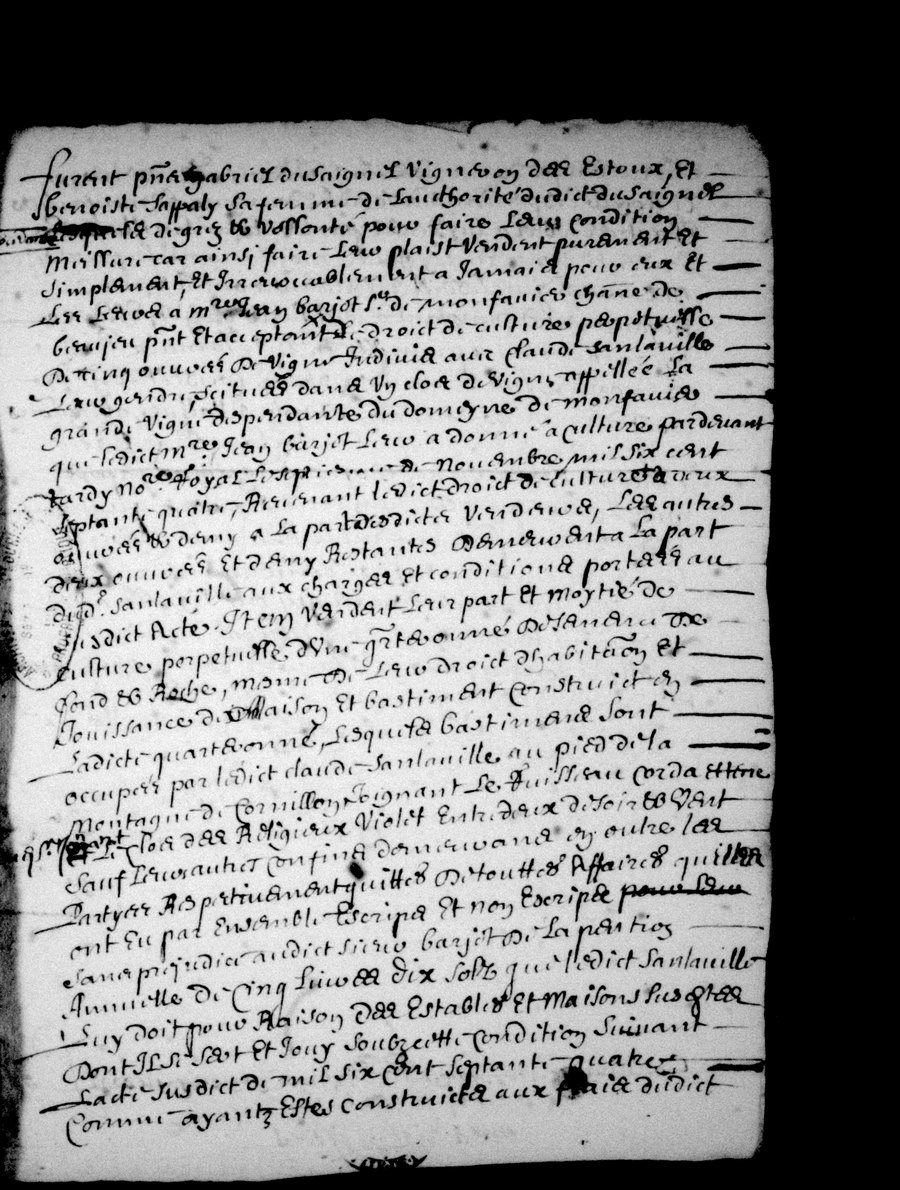 furent pn̄es gabriel dusaignel vigneron des Estoux, Et
benoiste Saffaly Sa femme de Lauthorité dudict dusaignel
de grez & vollonté pour faire Leur Condition
meilleure car ainsi faire Leur plaist vendent purement Et
simplement, Et Irrevocablement a Jamais pour eux Et
Les Leurs a mre Jean barjot Sr de monfavier chāne de
beaujeu pn̄t Et acceptant Le droict de culture perpetuelle
De Cinq ouvrees De vigne Indivis avec Claude Sanlaville
Leur gendre, scituées dans Un clos de vigne appellée La
grande vigne despendante du domeyne de monfavier
que ledict mre Jean barjot Leur a donné a culture pardevant
tardy Nore Royal Le septieme de Novembre mil six cent
septante quatre, Revenant ledict droict de culture a deux
ouvrees & demy a La part desdicts vendeurs, Les autres
deux ouvrees Et demy Restantes Demeurent a La part
dudt Sanlaville aux charges Et conditions portees au
susdict Acte. Item vendent Leur part Et moytié de
culture perpetuelle d'Une qrteronné De
fond & Roche, mesme De Leur droict dhabitaōn Et
Jouissance de Maison Et bastiment Construict en
Ladicte quarteronné, Lesquels bastimens sont
occupés par ledict claude Sanlaville au pied de la
montagne de Cornillon Joignant Le Ruisseau
Le Clos des Religieux Violet Entredeux de soir & vent
Sauf Leurs autres Confins demeurans en outre les
Partyes Respectivement quittes De touttes Affaires quilles
ont Eu par Ensemble Escripe Et non Escripe pour Leur
sans prejudice audict sieur barjot De La pention
Annuelle De Cinq Livres dix solz que ledict Sanlaville
Luy doit pour Raison des Estables Et Maison susdtes
Dont Il Se Sert Et Jouy soubz cette Condition Suivant
Lacte susdict de mil six cent septante quatre,
Comme ayantz Estes construicts aux frais dudict